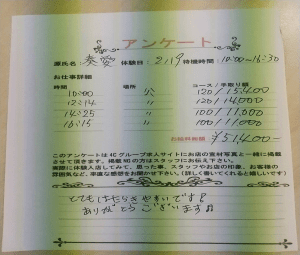 アンケート
源氏名: 奏愛 体験日: 2/19 待機時間: 10:00〜16:30
お仕事詳細
時間 場所 コース / 手取り額
10:00 120 / 15,400
12:14 120 / 14,000
14:25 100 / 11,000
16:15 100 / 11,000
お給料総額 ¥51,400-
このアンケートは4Cグループ求人サイトにお店の宣材写真と一緒に掲載
させて頂きます。掲載NGの方はスタッフにお伝え下さい。
実際に体験入店してみて、思った事、スタッフやお店の印象、お客様の
雰囲気など、率直な感想をお聞かせ下さい。(詳しく書いてくれると嬉しいです)
とてもはたらきやすいです!
ありがとうございます♪